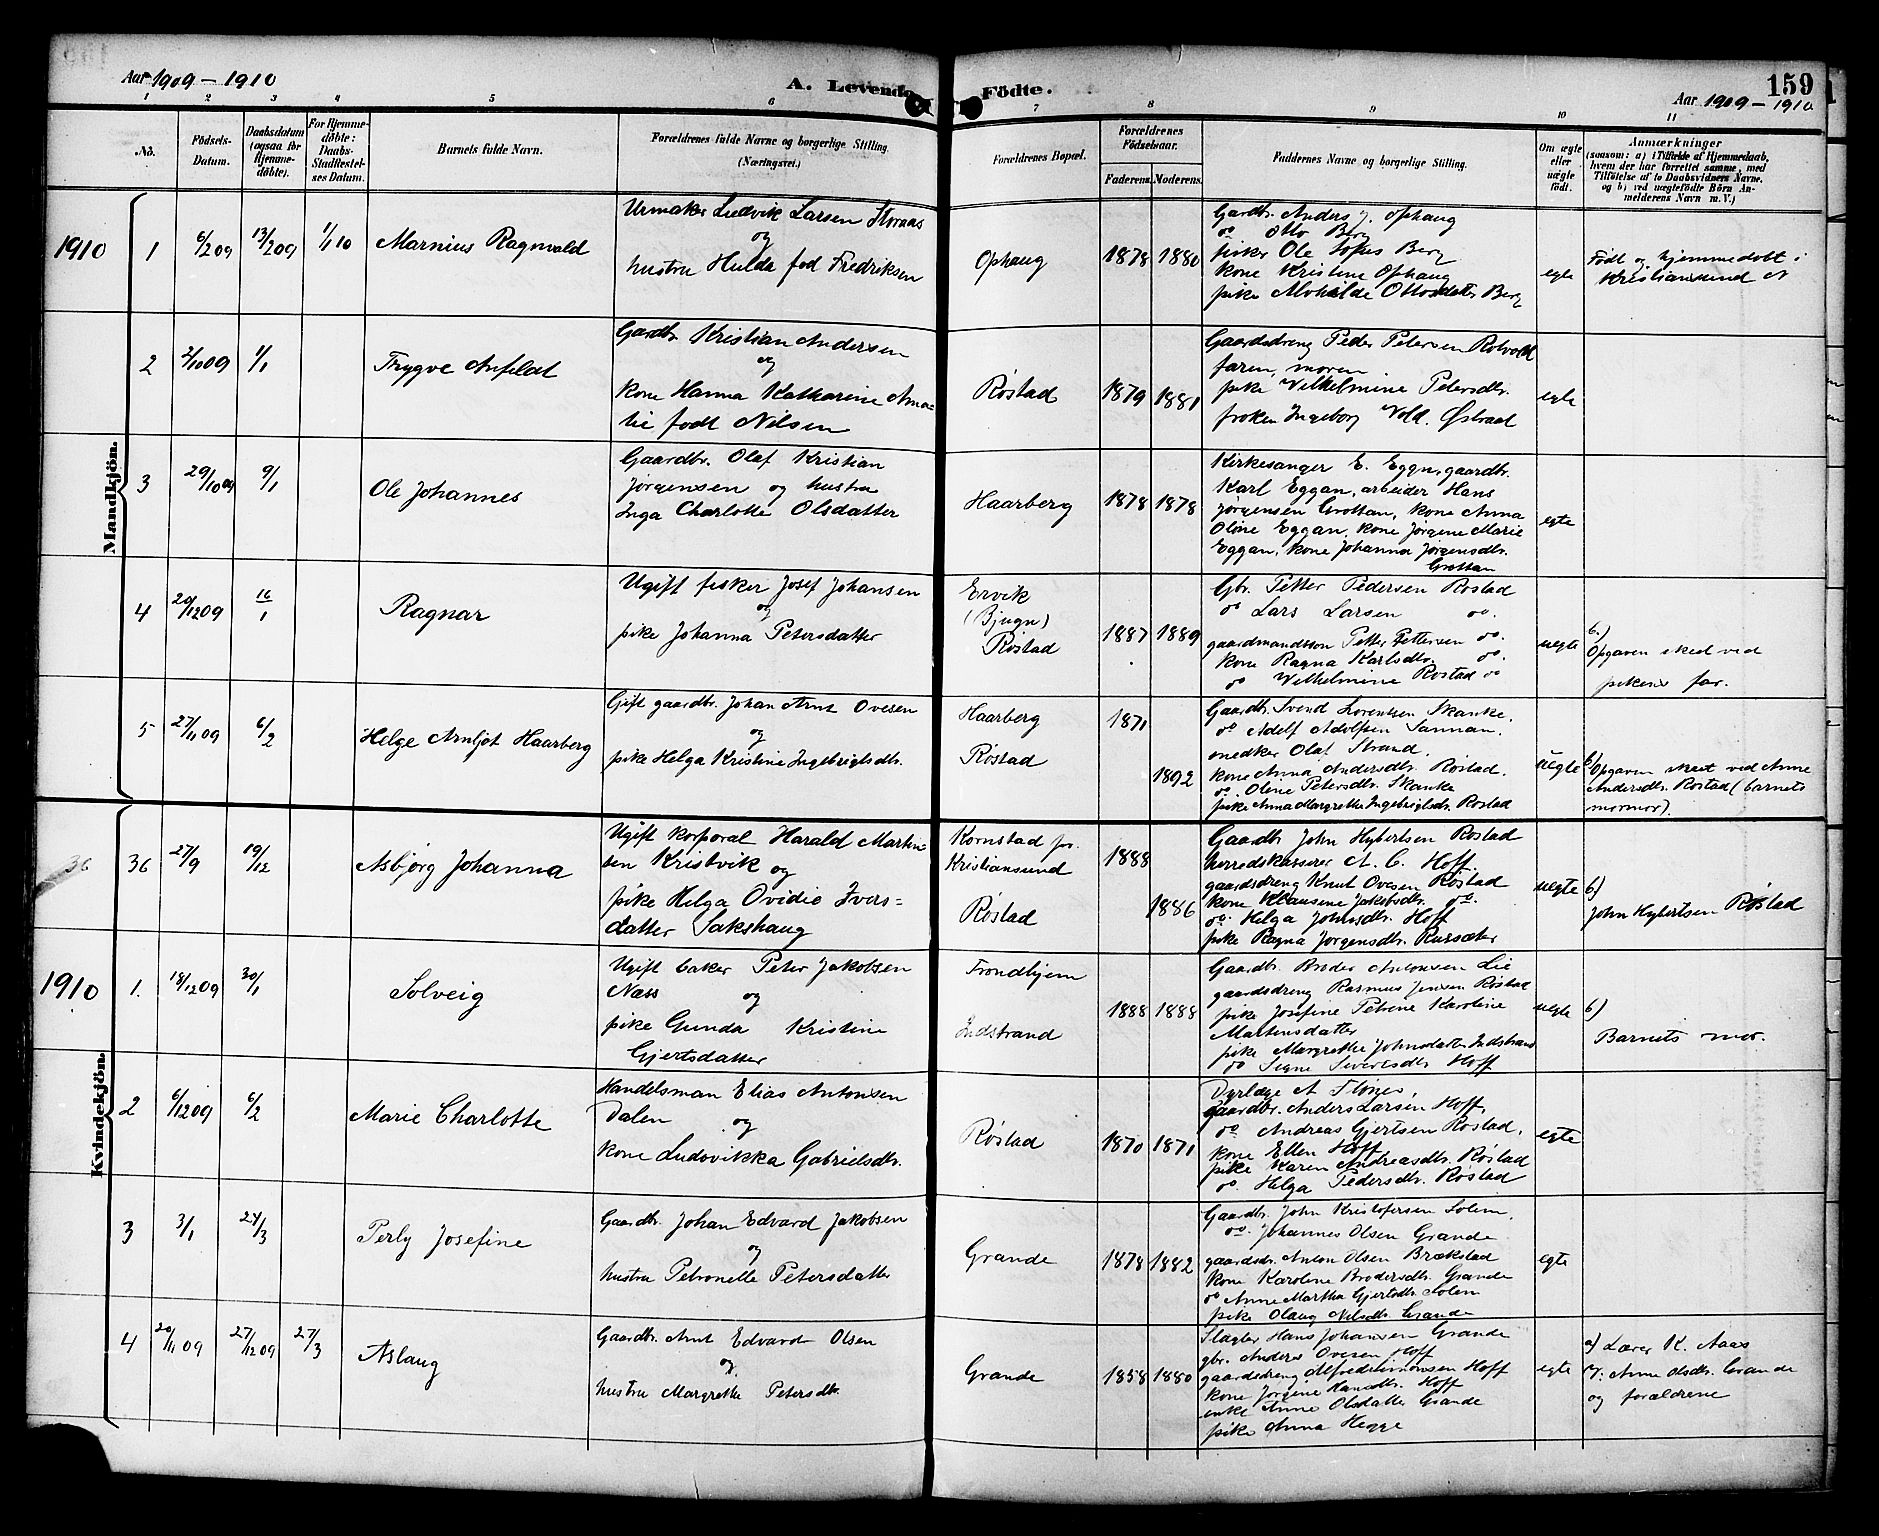 159
Aar 1909 – 1910
A. Levende Födte.
Aar 1909 – 1910
1 2 3 4 5 6 7 8 9 10 11
No.
Födsels-
Datum.
Daabsdatum
(ogsaa for
Hjemme-
döbte).
For Hjemme-
döbte:
Daabs-
Stadfæstel-
ses Datum.
Barnets fulde Navn.
Forældrenes fulde Navne og borgerlige Stilling
(Næringsvei.)
Forældrenes Bopæl.
Forældrenes
Födselsaar.
Faderens. Moderens.
Faddernes Navne og borgerlige Stilling.
Om ægte
eller
uægte
födt.
Anmærkninger
(saasom: a) i Tilfælde af Hjemmedaab,
hvem der har forrettet samme, med
Tilföielse af to Daabsvidners Navne.
og b) ved uægtefödte Börn An-
melderens Navn m. V.)
Mandkjön.
1910
1 6/2 09 13/2 09 1/1 10 Marnius Ragnvald
Urmaker Ludvik Larsen Storaas
og
hustru Hulda fød Fredriksen
Ophaug 1878 1880
Gardbr. Anders J. Ophaug
do Otto Berg
fisker Ole Sofus Berg
kone Kristine Ophaug
pike Alvhilde Ottosdatter Berg
egte
Født og hjemmedøbt i
Kristiansund N
2 2/10 09 1/1 Trygve Anfeldt
Gardbr. Kristian Andersen
og
kone Hanna Katharine Ama-
lie født Nilsen
Røstad 1879 1881
Gaardsdreng Peder Petersen Rotvold
faren, moren
pike Vilhelmine Petersdtr.
frøken Ingeborg Vold. Østraat
egte
3 29/10 09 9/1 Ole Johannes
Gaardbr. Olaf Kristian
Jørgensen og hustru
Inga Charlotte Olsdatter
Haarberg 1878 1878
Kirkesanger E. Eggan, gaardbr.
Karl Eggan, arbeider Hans
Jørgensen Grøttan, kone Anna
Oline Eggan, kone Jørgine Marie
Eggan, kone Johanna Jørgensdtr.
Grøttan
egte
4 20/12 09 16/1 Ragnar
Ugift fisker Josef Johansen
og
pike Johanna Petersdatter
Ervik
(Bjugn)
Røstad
1887 1889
Gbr. Petter Pedersen Røstad
do Lars Larsen do.
gaardmandssøn Petter Pettersen do.
kone Ragna Karlsdtr. do.
do Vilhelmine Røstad do
uegte
b.)
Opgaven sked ved
pikens far.
5 27/11 09 6/2 Helge Arnljot Haarberg
Gift gaardbr. Johan Arnt Ovesen
og
pike Helga Kristine Ingebrigtsdtr.
Haarberg 1871
Røstad 1892
Gaardbr. Svend Lorentsen Skanke.
do Adolf Adolfsen Sannan.
snedker Olaf Strand.
kone Anna Andersdtr. Røstad.
do. Oline Petersdtr. Skanke
pike Anna Margrethe Ingebrigtsdtr. Røstad
uegte
b) Opgaven skeet ved Anne
Andersdtr. Røstad (barnets
mormor).
36 36 27/9 19/12 Asbjørg Johanna
Ugift korporal Harald Martin
sen Kristvik og
pike Helga Ovidie Ivers=
datter Sakshaug
Kornstad pr.
Kristiansund 1888
Røstad 1886
Gaardbr John Hybertsen Røstad
herredskasserer A. C. Hoff,
gaardsdreng Knut Ovesen Røstad
kone Klausine Jakobsdtr. do.
do. Helga Johnsdtr. Hoff
pike Ragna Jørgensdtr. Russæter
uegte
b)
John Hybertsen Røstad
1910
Kvindekjön.
1. 18/12 09 30/1 Solveig
Ugift baker Peter Jakobsen
Næss og
pike Gunda Kristine
Gjertsdatter
Trondhjem
Indstrand
1888 1888
Gaardbr. Broder Antonsen Lie
gaardsdreng Rasmus Jensen Røstad
pike Josefine Petrine Karoline
Martinsdatter
pike Margrethe Johnsdatter Indstrand
do Signe Sivertsdtr Hoff
uegte
b)
Barnets mor.
2 6/12 09 6/2 Marie Charlotte
Handelsman Elias Antonsen
Dalen og
kone Ludovikka Gabrielsdtr.
Røstad 1870 1871
Dyrlæge A Flønes,
gaardbr. Anders Larsen Hoff,
do Andreas Gjertsen Røstad,
kone Ellen Hoff
pike Karen Andreasdtr. Røstad
do. Helga Pedersdtr. Røstad
egte
3 3/1 24/3 Perly Josefine
Gaardbr. Johan Edvard Jakobsen
og
hustru Petronelle Petersdatter
Grande 1878 1882
Gaardbr. John Kristofersen Solem,
do. Johannes Olsen Grande
gaardsdr. Anton Olsen Brækstad
kone Karoline Brodersdtr. Grande
do Anne Martha Gjertsdtr Solem
pike Olaug Nilsdtr. Grande
egte
4 20/11 09 27/12 09 27/3 Aslaug
Gaardbr. Arnt Edvard Olsen
og
hustru Margrethe Petersdtr.
Grande 1858 1880
Slagter Hans Johansen Grande
gbr. Anders Ovesen Hoff
gaardsdreng Alfred Simonsen Hoff
kone Jørgine Hansdtr. Hoff
enke Anne Olsdatter Grande
pike Anna Hegge
egte
a) Lærer K. Aaas
V: Anne Olsdtr. Grande
og forældrene